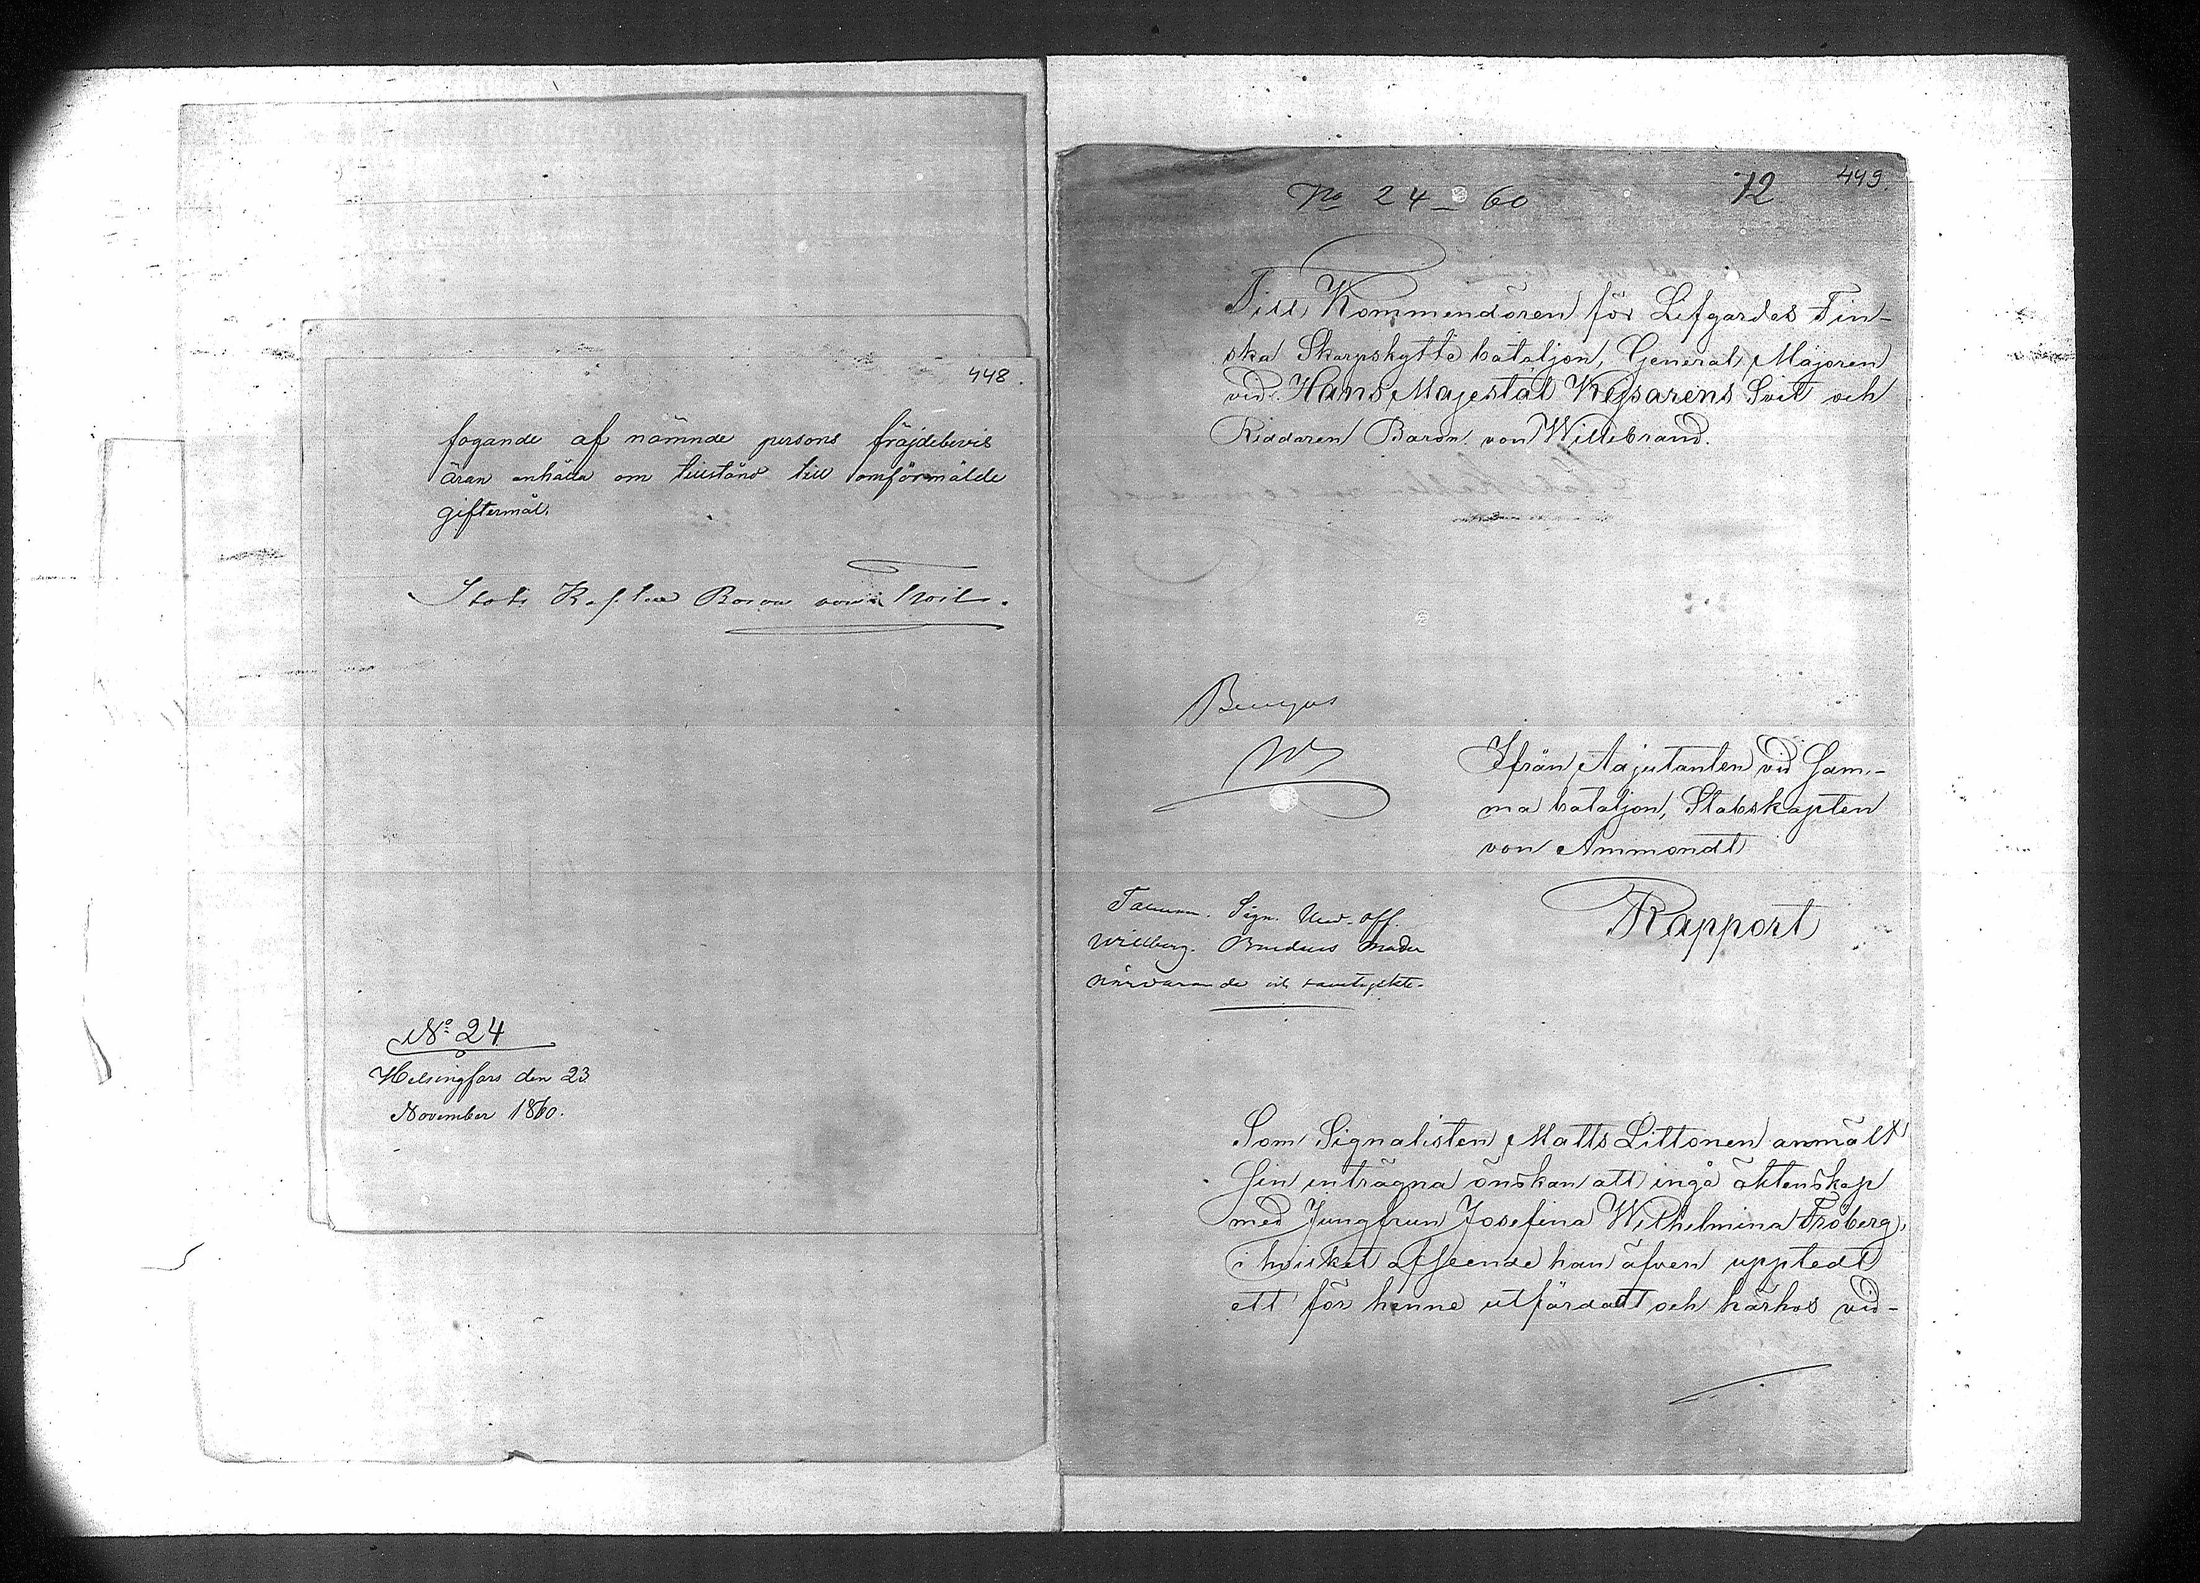 448.
fogande af nämnde persons fräjdebevis
äran anhålla om tillstånd till omförmälde
giftermål.
Stabs Kapten Baron von Troil.
No 24
Helsingfors den 23
November 1860.
No 24 – 60
72
449.
Till Kommendören för Lifgardes Fin-
ska Skarpskytte bataljon, General Majoren
vid Hans Majestät Kejsarens Svit och
Riddaren Baron von Willebrand.
Beviljas
W
Ifrån Adjutanten vid Sam-
ma bataljon, Stabskapten
von Ammondt
Sign. Und. off.
Willberg. Brudens moder
närvarande och samtyckte.
Rapport
Som Signalisten Matts Littonen anmält
Sin inträgna önskan att ingå äktenskap
med Jungfrun Josefina Wilhelmina Fröberg,
i hvilket afseende han äfven upptedt
ett för henne utfärdadt och härhos vid-